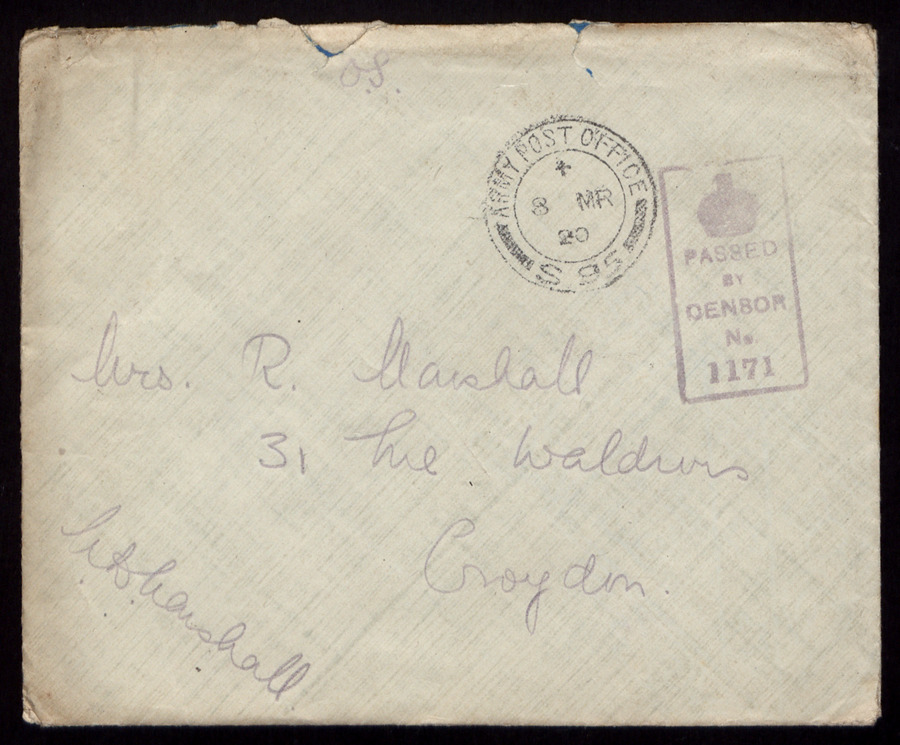 O.S.
ARMY POST OFFICE
8 MR
20
S 95
PASSED
BY
CENSOR
No.
1171
Mrs. R. Marshall
31 The Waldrons
Croydon.
Marshall